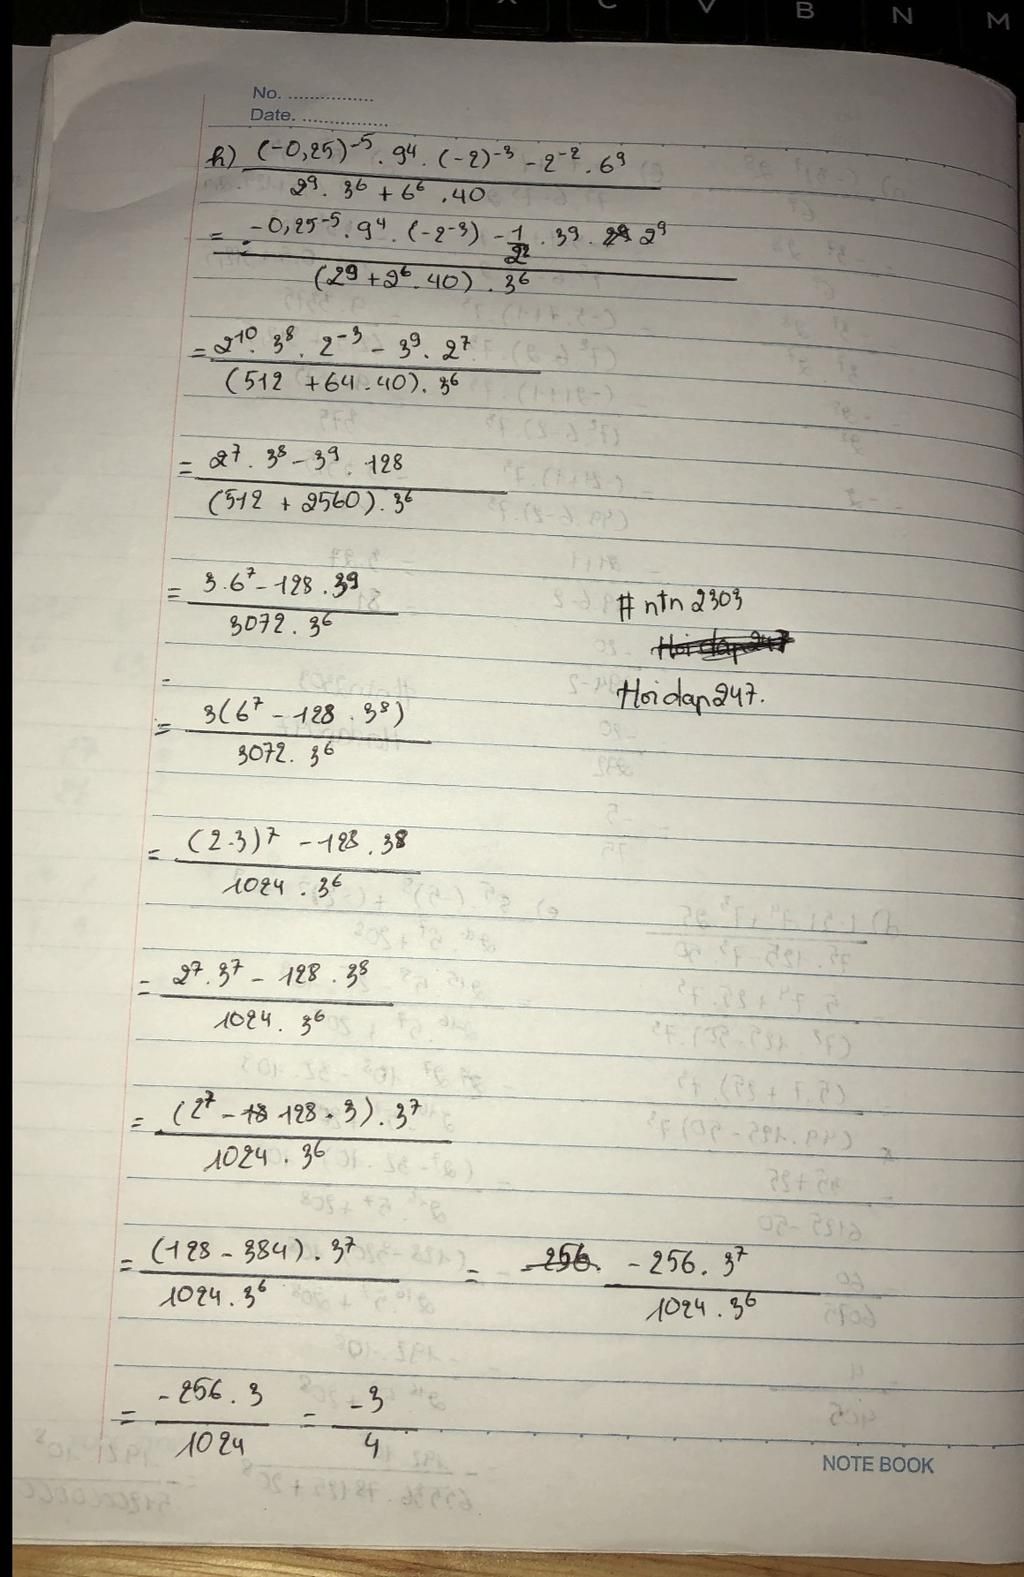 X C V B N M
No. ...............
Date. ................
h) (-0,25)⁻⁵ . 9⁴ . (-2)⁻³ - 2⁻² . 6⁹
2⁹ . 3⁶ + 6⁶ . 40
= -0,25⁻⁵ . 9⁴ . (-2⁻³) - 1/2² . 3⁹ . 2⁹
(2⁹ + 2⁶ . 40) . 3⁶
= 2¹⁰ . 3⁸ . 2⁻³ - 3⁹ . 2⁷
(512 + 64 . 40) . 3⁶
= 2⁷ . 3⁸ - 3⁹ . 128
(512 + 2560) . 3⁶
= 3 . 6⁷ - 128 . 3⁹
3072 . 3⁶
# ntn 2303
Hoidap247
Hoidap247.
= 3(6⁷ - 128 . 3⁸)
3072 . 3⁶
= (2 . 3)⁷ - 128 . 3⁸
1024 . 3⁶
= 2⁷ . 3⁷ - 128 . 3⁸
1024 . 3⁶
= (2⁷ - 128 . 3) . 3⁷
1024 . 3⁶
= (128 - 384) . 3⁷ = -256 . -256 . 3⁷
1024 . 3⁶ 1024 . 3⁶
= -256 . 3 = -3
1024 4
NOTE BOOK